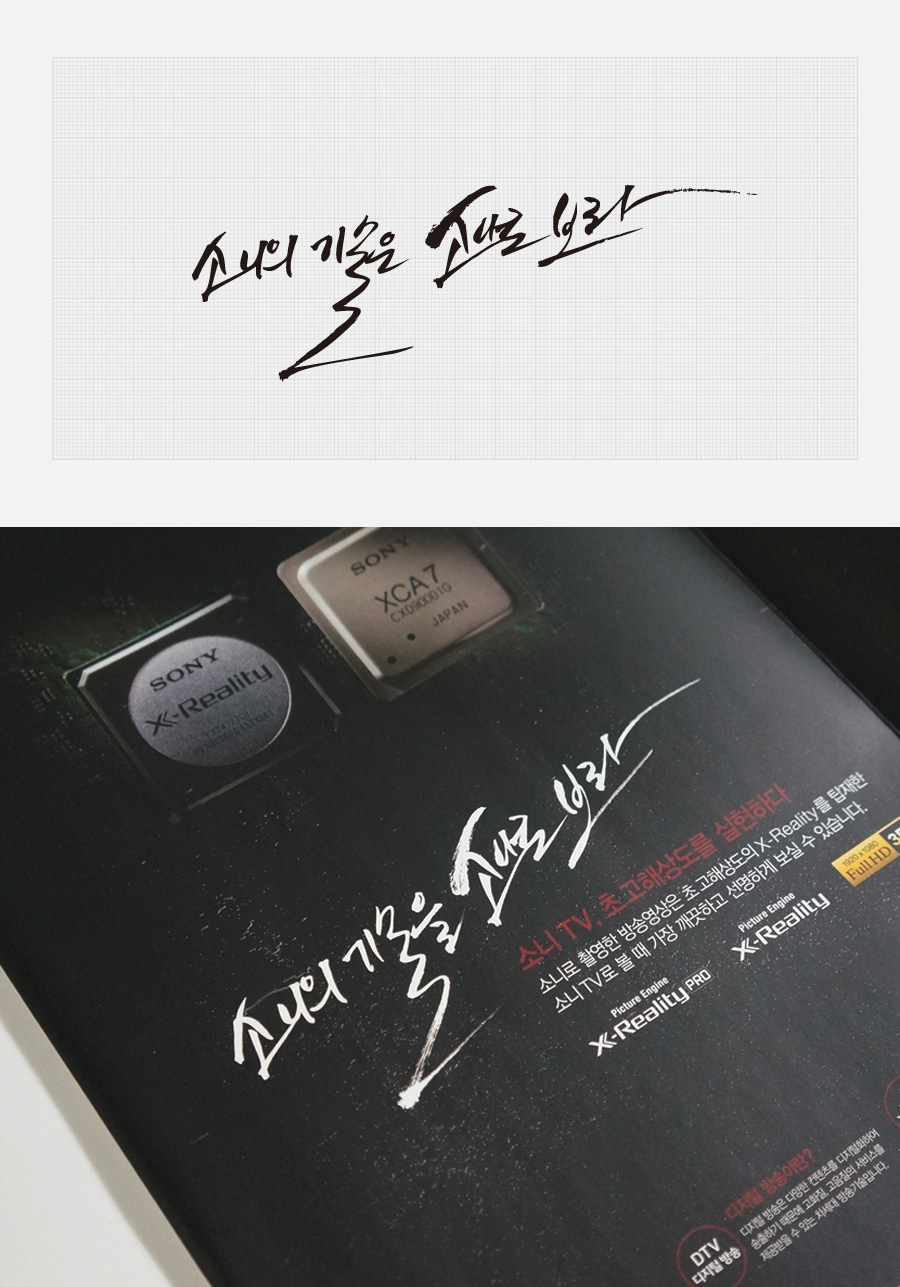 소니의 기술은 소니로 보라
SONY
XCA7
CXD90001G
JAPAN
SONY
X-Reality
소니의 기술을 소니로 보라
소니 TV, 초고해상도를 실현하다
소니로 촬영한 방송영상은 초 고해상도의 X-Reality를 탑재한
소니 TV로 볼 때 가장 깨끗하고 선명하게 보실 수 있습니다.
Picture Engine
X-Reality PRO
Picture Engine
X-Reality
1920 x 1080
Full HD
DTV
디지털 방송
디지털 방송이란?
디지털 방송은 다양한 컨텐츠를 디지털화하여
송출하기 때문에 고화질, 고음질의 서비스를
제공받을 수 있는 차세대 방송기술입니다.